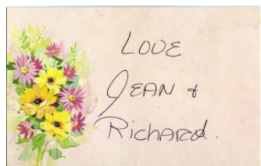 LOVE
JEAN +
RicHARd.